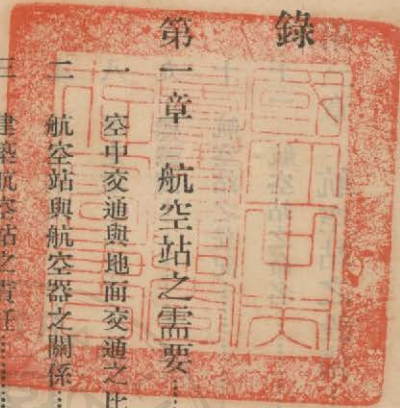 錄
第一章 航空站之需要……
一 空中交通與地面交通之比
二 航空站與航空器之關係……
三 建築航空站之責任……